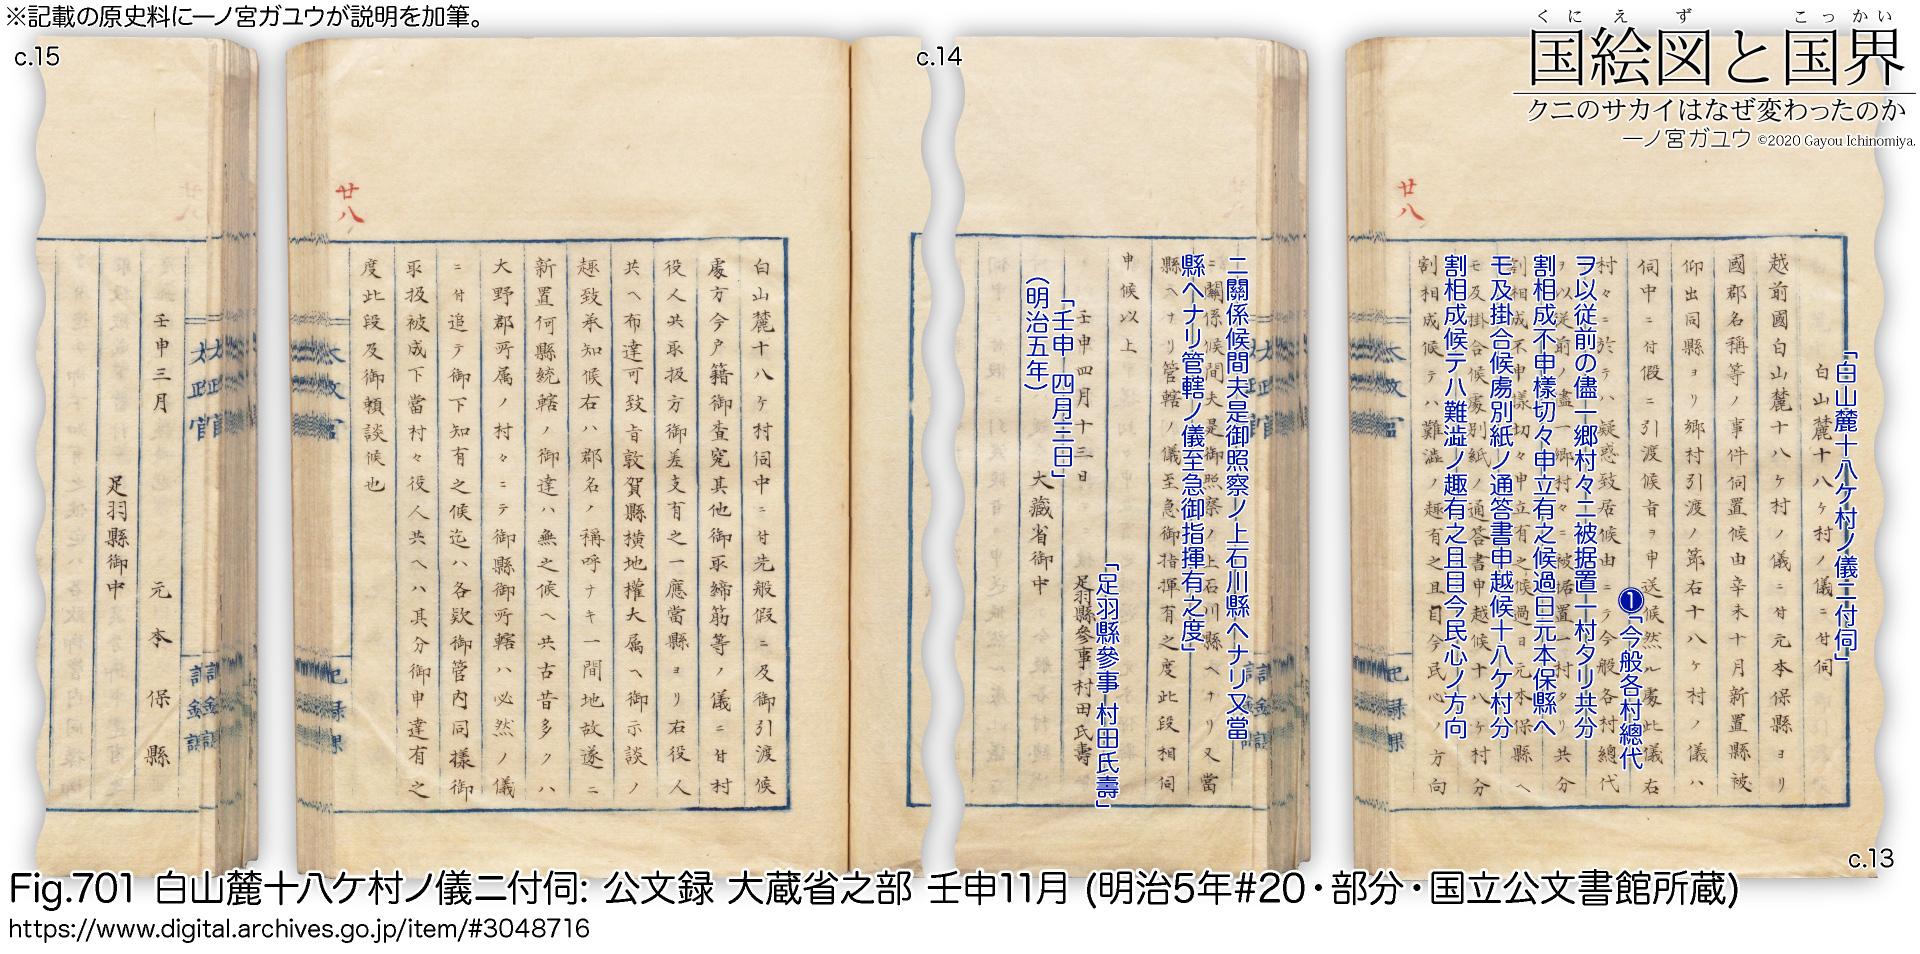 ※記載の原史料に一ノ宮ガユウが説明を加筆。
くにえず こっかい
国絵図と国界
クニのサカイはなぜ変わったのか
一ノ宮ガユウ ©2020 Gayou Ichinomiya.
c.13
「白山麓十八ケ村ノ儀ニ付伺」
白山麓十八ヶ村ノ儀ニ付伺
越前國白山麓十八ヶ村ノ儀ニ付元本保縣ヨリ
國郡名稱等ノ事件伺置候由辛未十月新置縣被
仰出同縣ヨリ郷村引渡ノ節右十八ヶ村ノ儀ハ
伺中ニ付假ニ引渡候旨ヲ申送候然ル處此儀右
村々ニ於テハ疑惑致居候由ニテ今般各村總代
❶「今般各村總代
ヲ以従前の儘一郷村々ニ被据置一村タリ共分
割相成不申様切々申立有之候過日元本保縣へ
モ及掛合候處別紙ノ通答書申越候十八ケ村分
割相成候テハ難澁ノ趣有之且目今民心ノ方向
廿八
c.14
ニ關係候間夫是御照察ノ上石川縣へナリ又當
縣へナリ管轄ノ儀至急御指揮有之度」
縣へナリ管轄ノ儀至急御指揮有之度此段相伺
申候以上
「壬申 四月十三日」
(明治五年)
壬申四月十三日
「足羽縣參事 村田氏壽」
足羽縣參事村田氏壽
大藏省御中
太政官
白山麓十八ヶ村伺中ニ付先般假ニ及御引渡候
處方今戸籍御査究其他御取締筋等ノ儀ニ付村
役人共取扱方御差支有之一應當縣ヨリ右役人
共へ布達可致旨敦賀縣横地權大属へ御示談ノ
趣致承知候右ハ郡名ノ稱呼ナキ一間地故遂ニ
新置何縣統轄ノ御達ハ無之候へ共古昔多クハ
大野郡所属ノ村々ニテ御縣御所轄ハ必然ノ儀
ニ付追テ御下知有之候迄ハ各欵御管内同様御
取扱被成下當村々役人共へハ其分御申達有之
度此段及御頼談候也
廿八
c.15
太政官
壬申三月
元本保縣
足羽縣御中
Fig.701 白山麓十八ケ村ノ儀ニ付伺: 公文録 大蔵省之部 壬申11月 (明治5年#20・部分・国立公文書館所蔵)
https://www.digital.archives.go.jp/item/#3048716